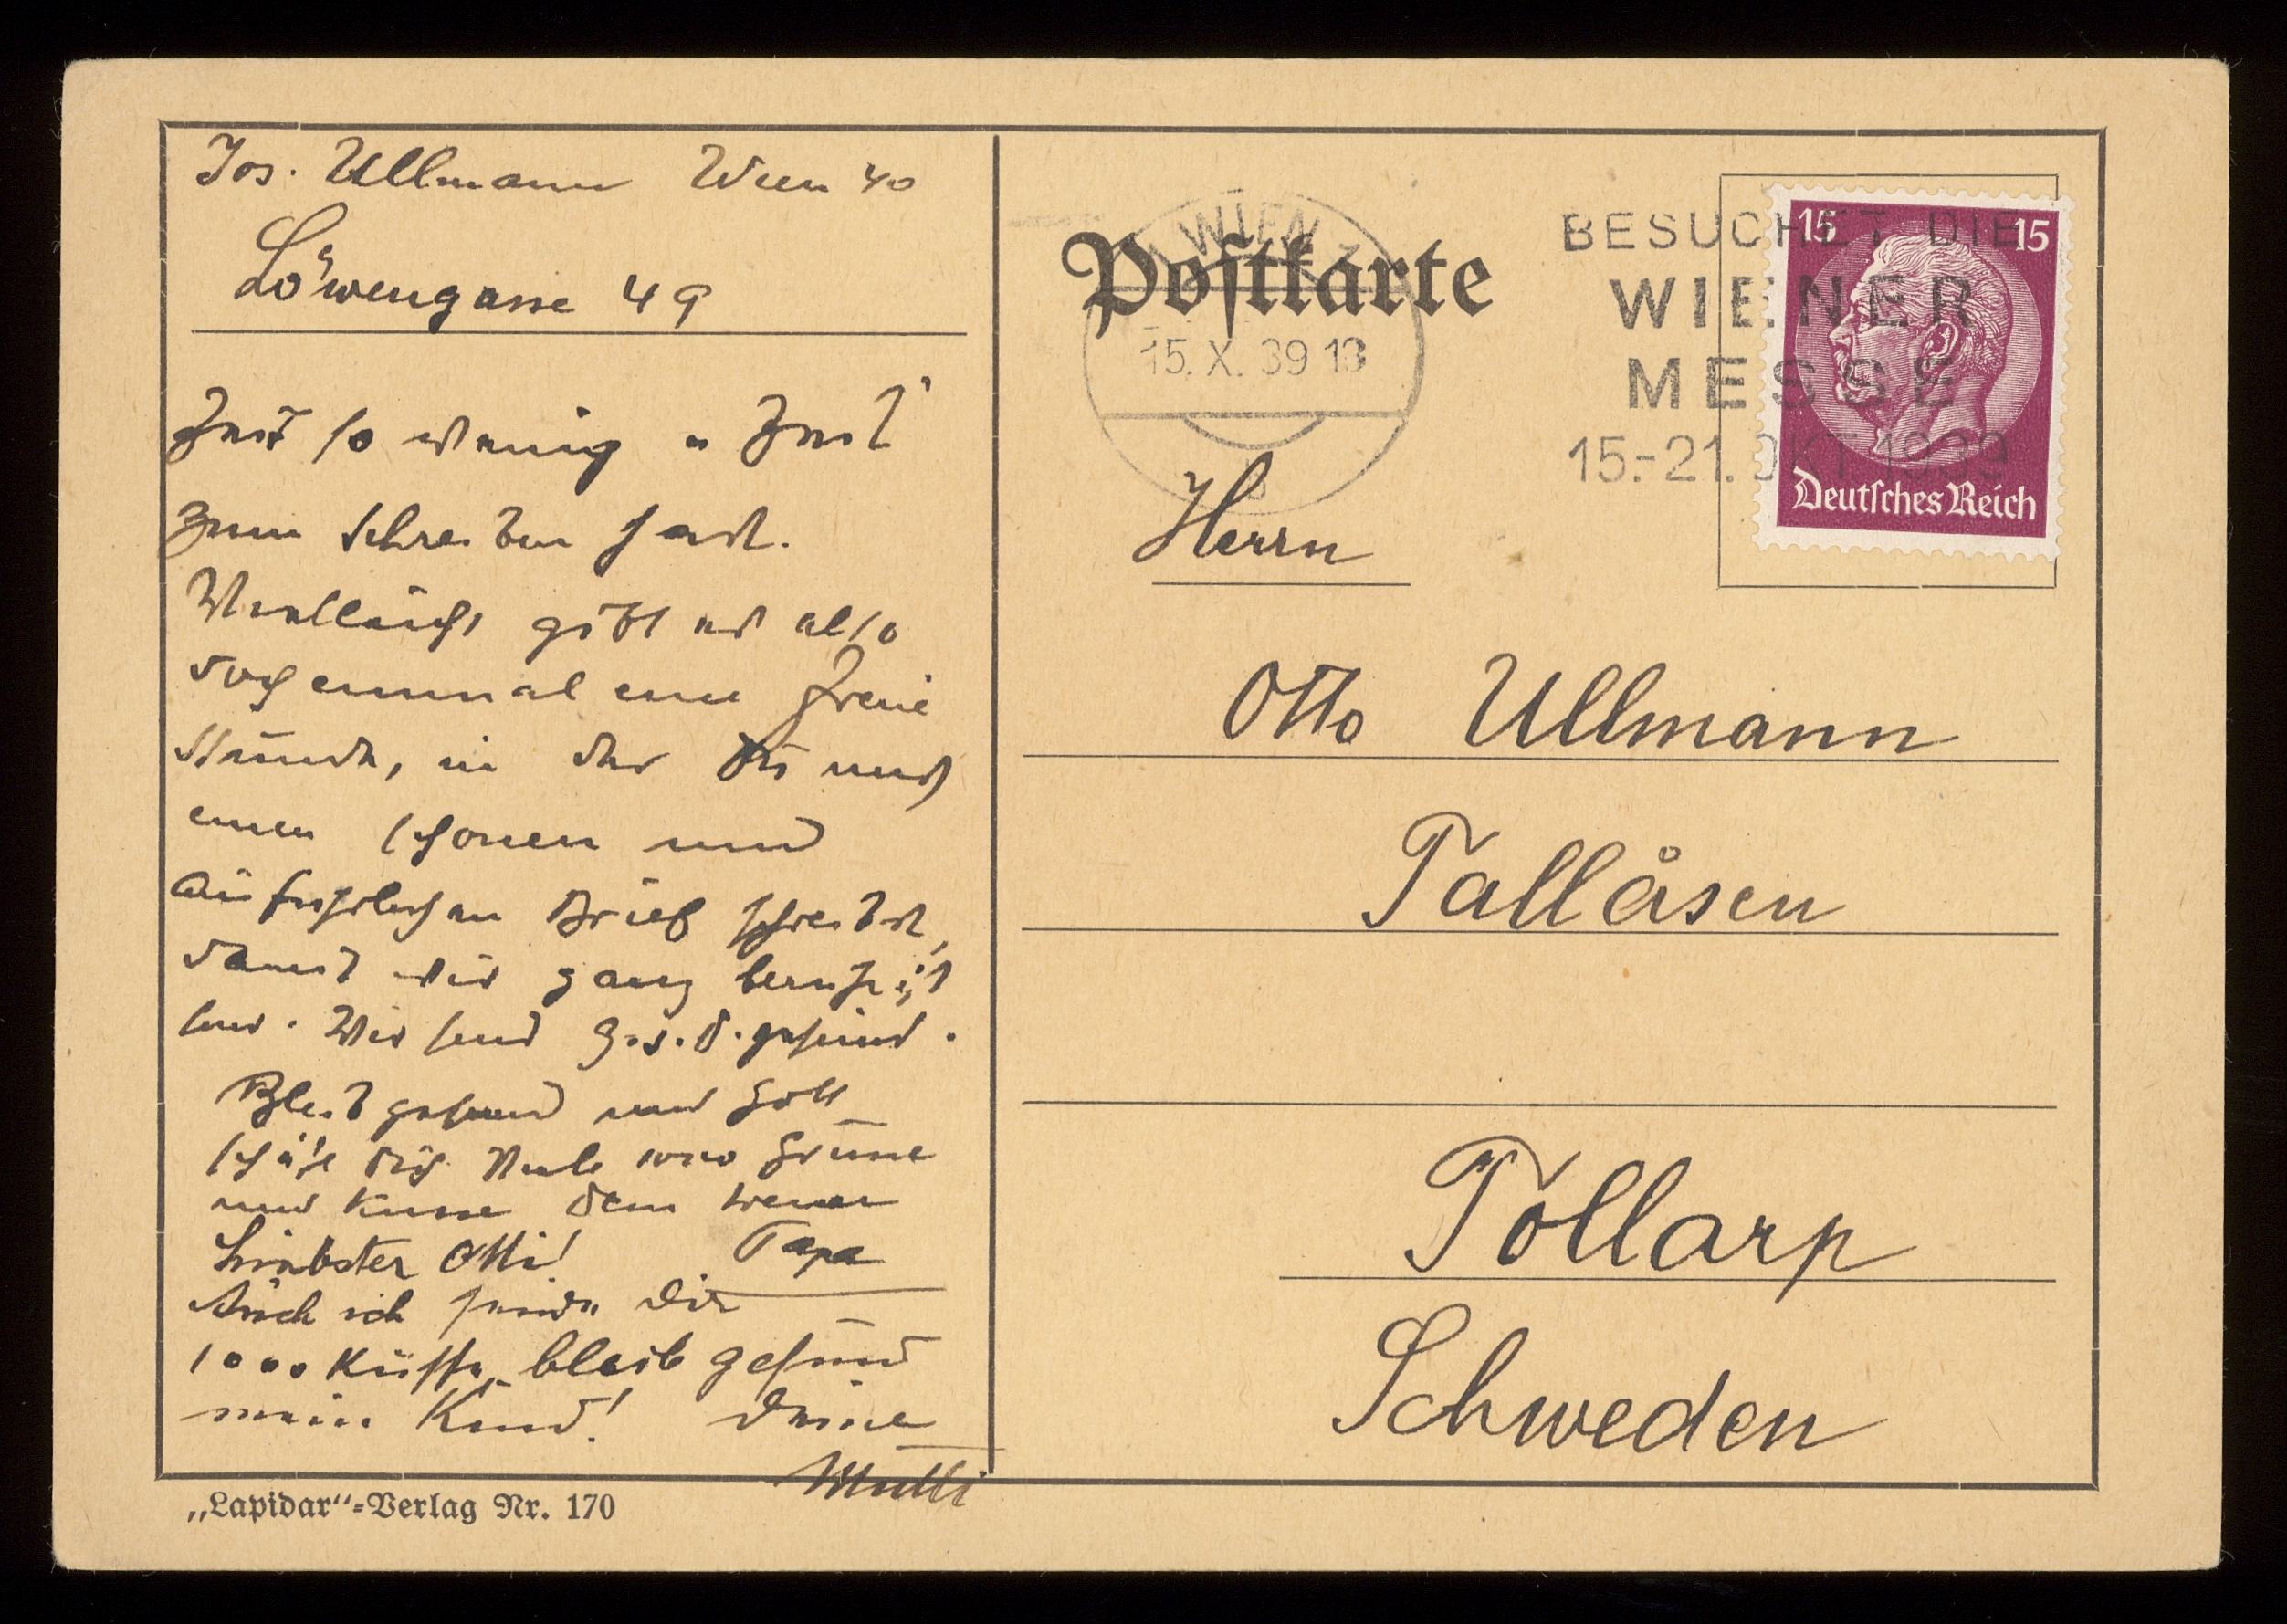 Jos. Ullmann Wien 40
Löwengasse 49
Zeit so wenig " Zeit"
zum Schreiben hast.
Vielleicht gibt es also
doch einmal eine freie
Stunde, in der Du uns
einen schönen und
ausführlichen Brief schreibst,
damit wir ganz beruhigt
sind. Wir sind G. s. D. gesund.
Bleib gesund und Gott
schütze Dich. Viele 1000 Grüsse
und Küsse Dein treuer
Papa
Liebster Otti!
Auch ich sende Dir
1000 Küsse, bleib gesund
mein Kind! Deine
Mutti
„Lapidar"=Verlag Nr. 170
Postkarte
WIEN
15. X. 39 13
BESUCHET DIE
WIENER
MESSE
15.-21. OKT 1939
15 15
Deutsches Reich
Herrn
Otto Ullmann
Tallåsen
Tollarp
Schweden